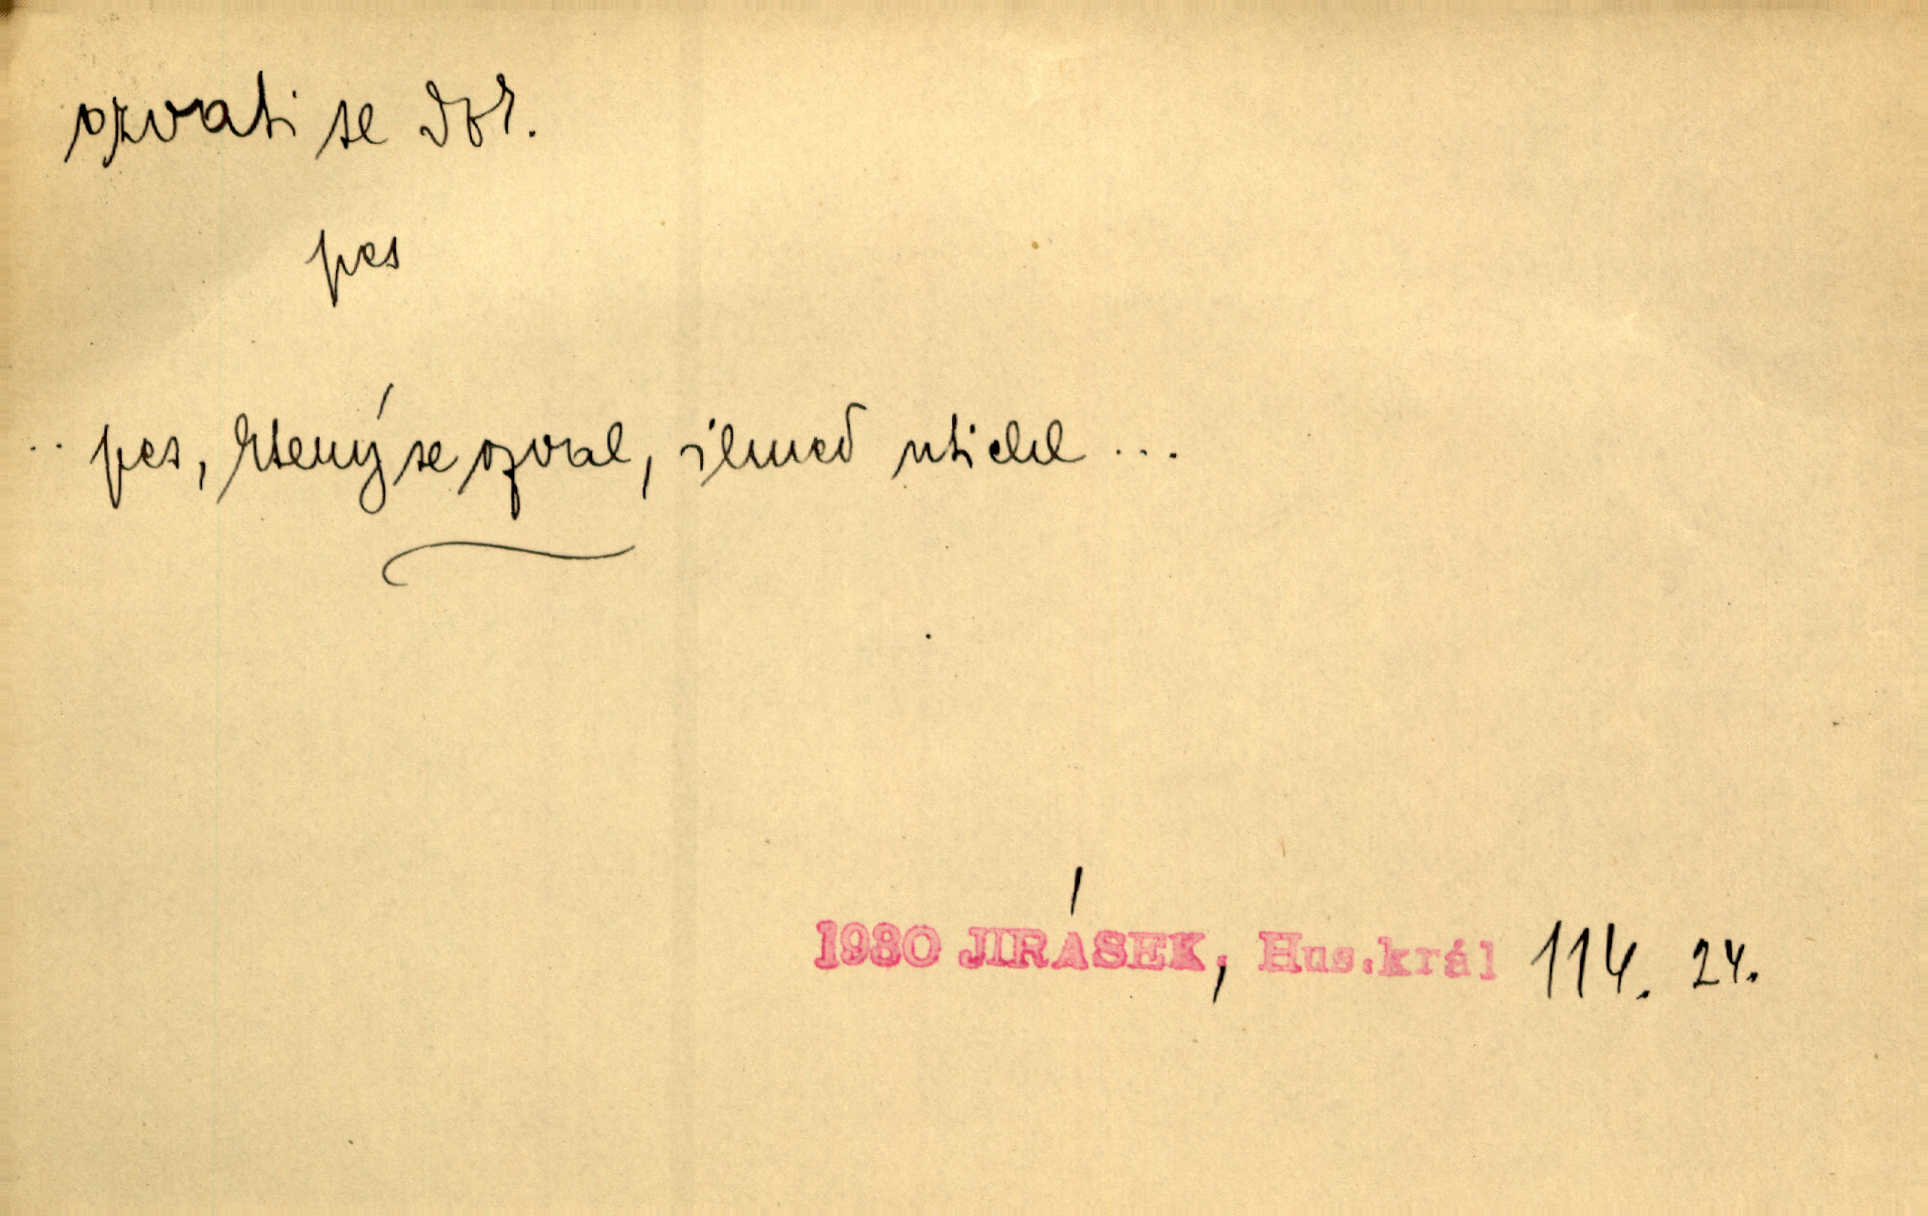 ozvati se dok.
pes
.. pes, který se ozval, ihned utichl ...
1930 JIRÁSEK, Hus.král 114. 24.